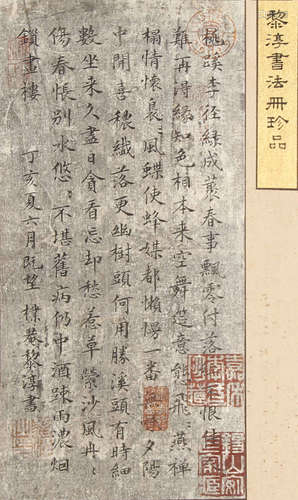 黎淳書法冊珍品
桃蹊李徑綠成叢春事飄零付落
難再得緣知色相本來空舞筵意態飛飛燕禪
榻情懷裊裊風蝶使蜂媒都懶慢一番
夕陽
中開喜穠纖落更幽樹頭何用勝溪頭有時細
數坐來久盡日貪看忘却愁惹草縈沙風冉冉
傷春悵別水悠悠不堪舊病仍中酒疎雨濃烟
鎖畫樓
丁亥夏六月既望
黎淳書